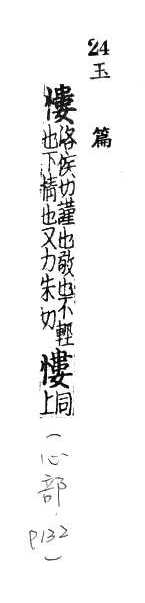 24
玉篇
慺洛侯切謹也敬也不輕
也下情也又力朱切
慺同
上
(心部, P132)